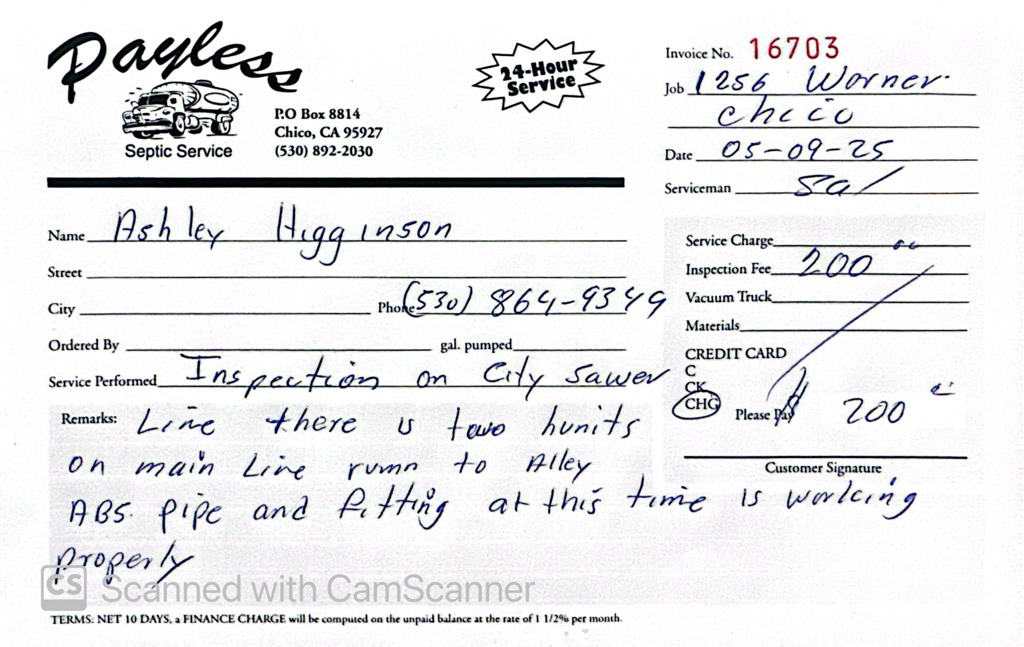 Payless
Septic Service
P.O Box 8814
Chico, CA 95927
(530) 892-2030
24-Hour
Service
Invoice No. 16703
Job 1256 Worner
Chico
Date 05-09-25
Serviceman Sal
Name Ashley Higginson
Street
City Phone (530) 864-9349
Ordered By gal. pumped
Service Performed Inspection on City Sawer
Remarks: Line there is two hunits
on main Line runn to Alley
ABS pipe and fitting at this time is working
properly
Service Charge
Inspection Fee 200 00
Vacuum Truck
Materials
CREDIT CARD
C
CK
CHG Please Pay $ 200
Customer Signature
CS Scanned with CamScanner
TERMS: NET 10 DAYS, a FINANCE CHARGE will be computed on the unpaid balance at the rate of 1 1/2% per month.